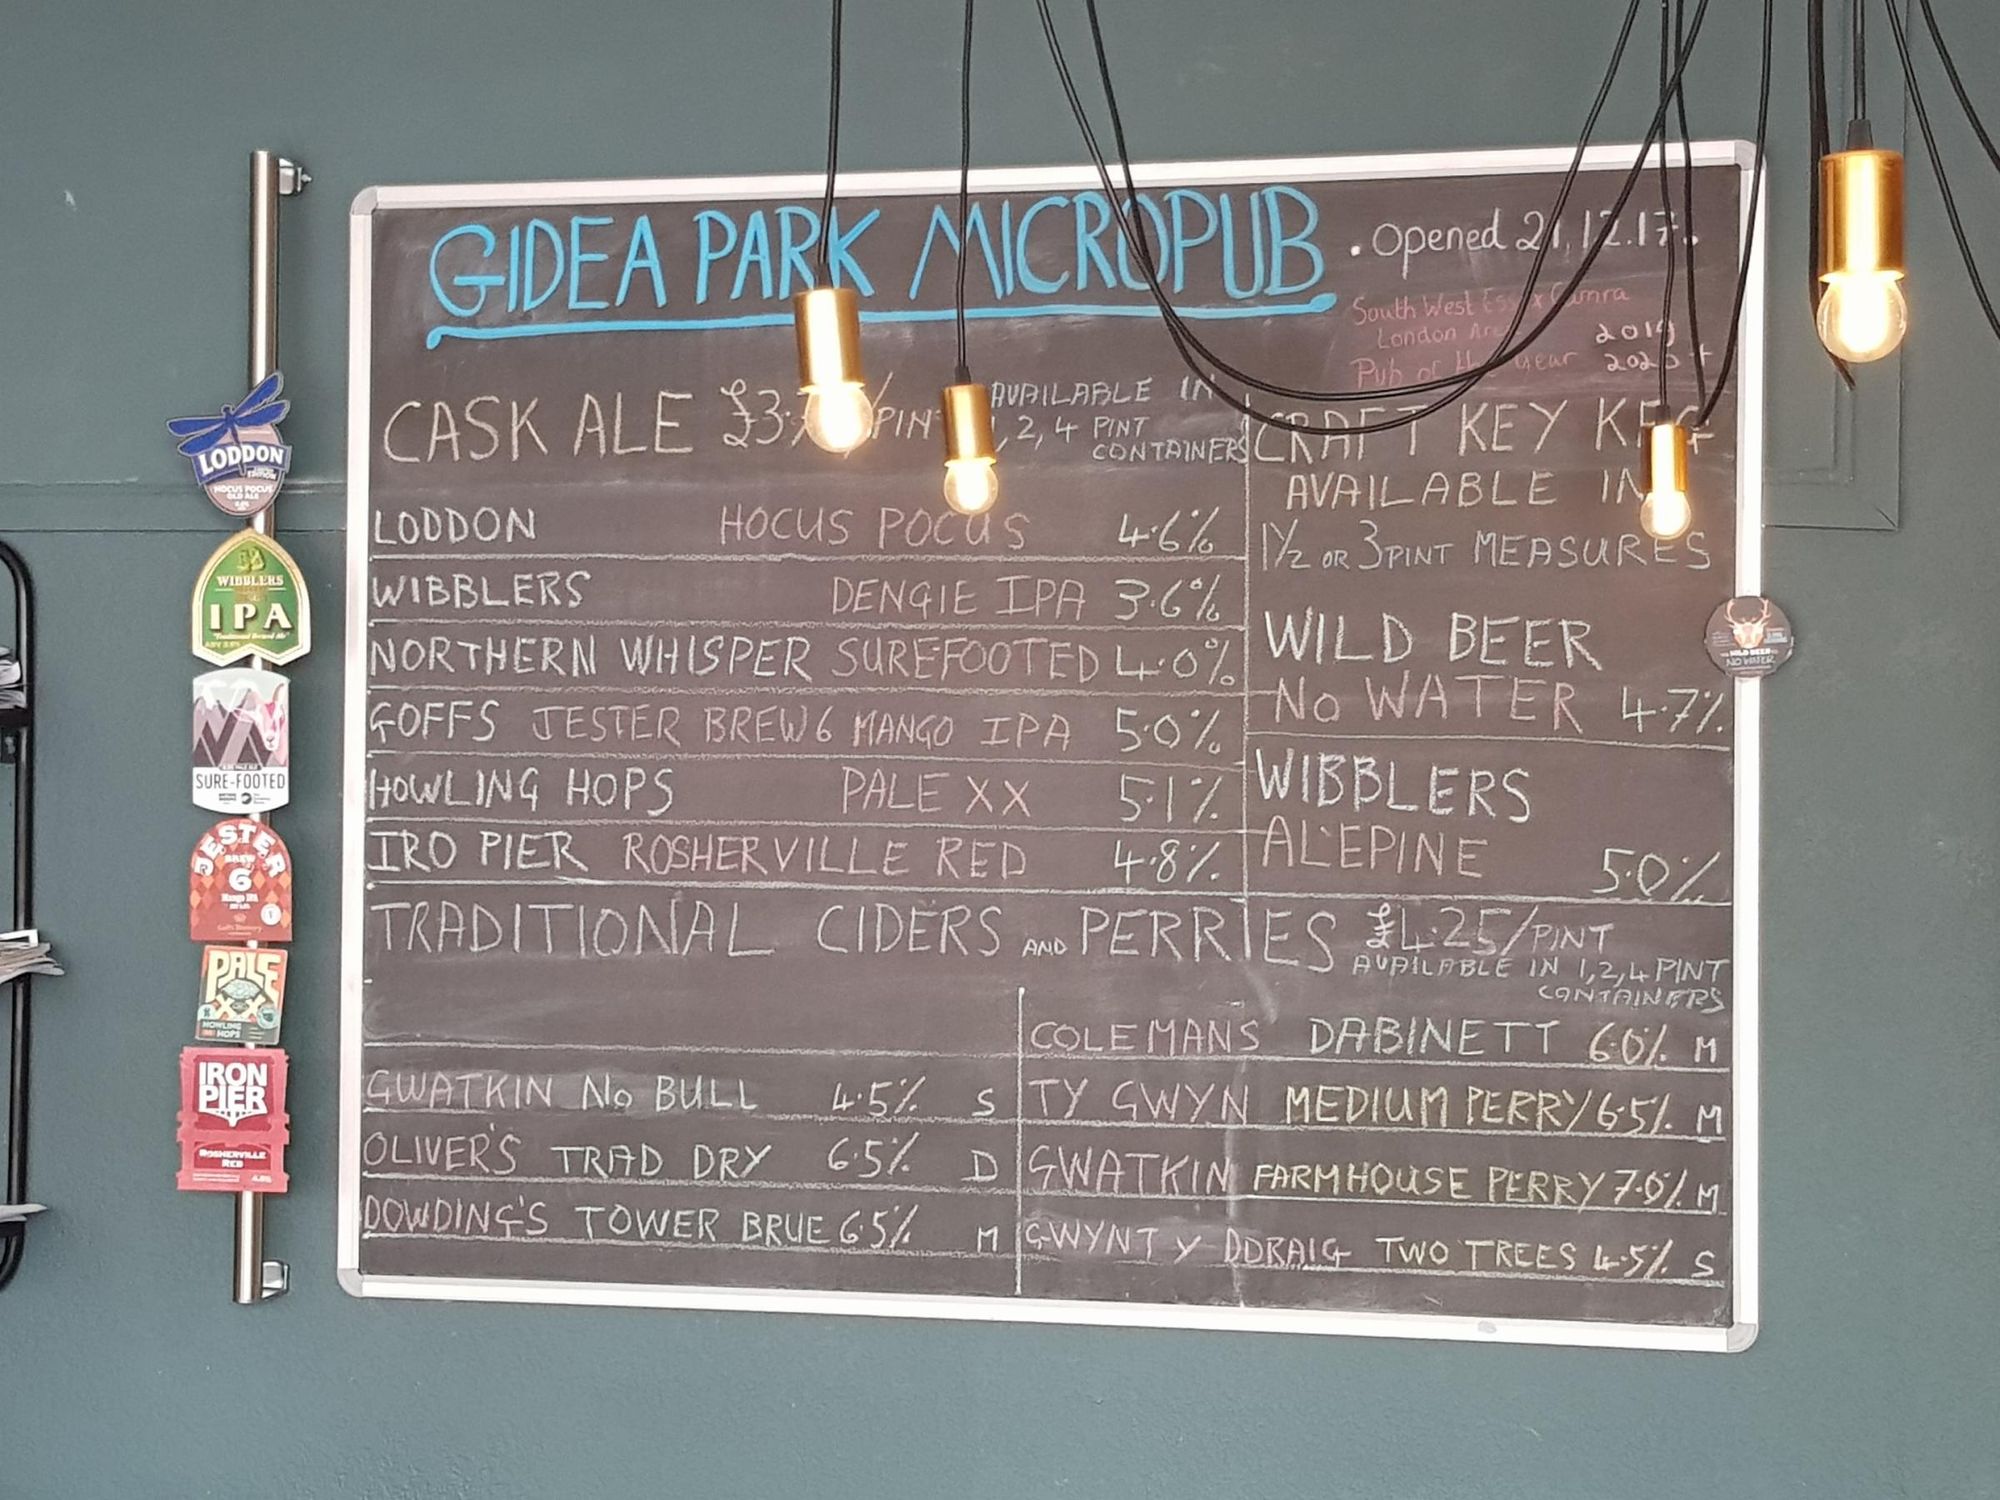 GIDEA PARK MICROPUB
. Opened 21.12.17.
South West Essex Camra
London Area 2019
Pub of the year 2020 +
CASK ALE £3. /PINT
AVAILABLE IN
1, 2, 4 PINT
CONTAINERS
LODDON HOCUS POCUS 4.6%
WIBBLERS DENGIE IPA 3.6%
NORTHERN WHISPER SUREFOOTED 4.0%
GOFFS JESTER BREW 6 MANGO IPA 5.0%
HOWLING HOPS PALE XX 5.1%
IRO PIER ROSHERVILLE RED 4.8%
CRAFT KEY KEG
AVAILABLE IN
1½ OR 3 PINT MEASURES
WILD BEER
NO WATER 4.7%
WIBBLERS
ALEPINE 5.0%
TRADITIONAL CIDERS AND PERRIES £4.25/PINT
AVAILABLE IN 1,2,4 PINT
CONTAINERS
GWATKIN NO BULL 4.5% S
OLIVER'S TRAD DRY 6.5% D
DOWDING'S TOWER BRUE 6.5% M
COLEMANS DABINETT 6.0% M
TY GWYN MEDIUM PERRY 6.5% M
GWATKIN FARMHOUSE PERRY 7.0% M
GWYNT Y DDRAIG TWO TREES 4.5% S
LODDON
HOCUS POCUS
OLD ALE
WIBBLERS
IPA
SURE-FOOTED
JESTER
BREW
6
Mango IPA
PALE
XX
HOWLING
HOPS
IRON
PIER
ROSHERVILLE
RED
WILD BEER
NO WATER